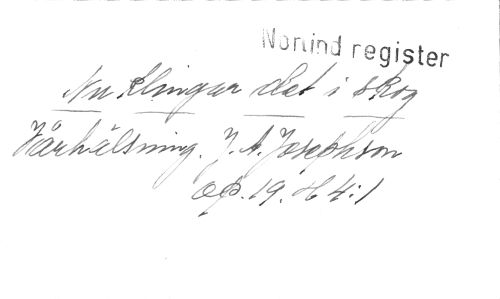 Norlind register
Nu klingar det i skog
Vårhälsning. J. A. Josephson
op. 19. H 4:1